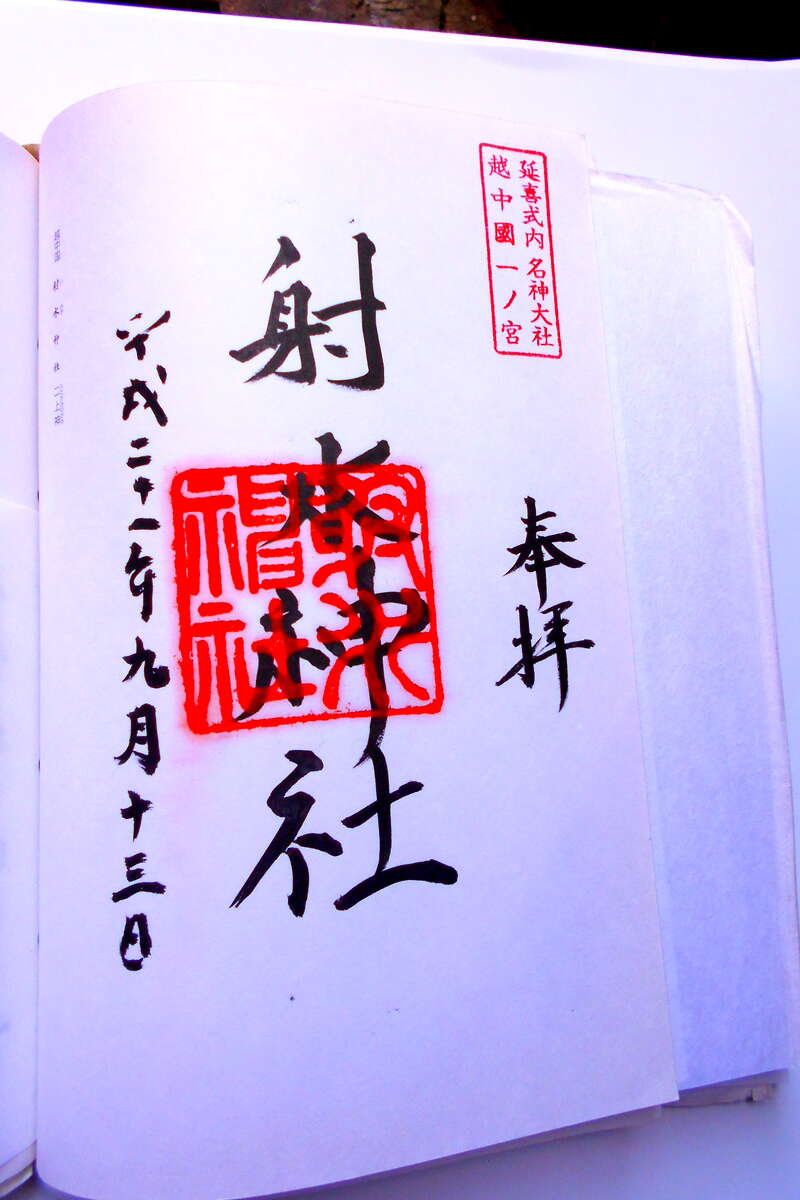 延喜式内名神大社
越中國一ノ宮
奉拝
射水神社
射水神社
平成二十一年九月十三日